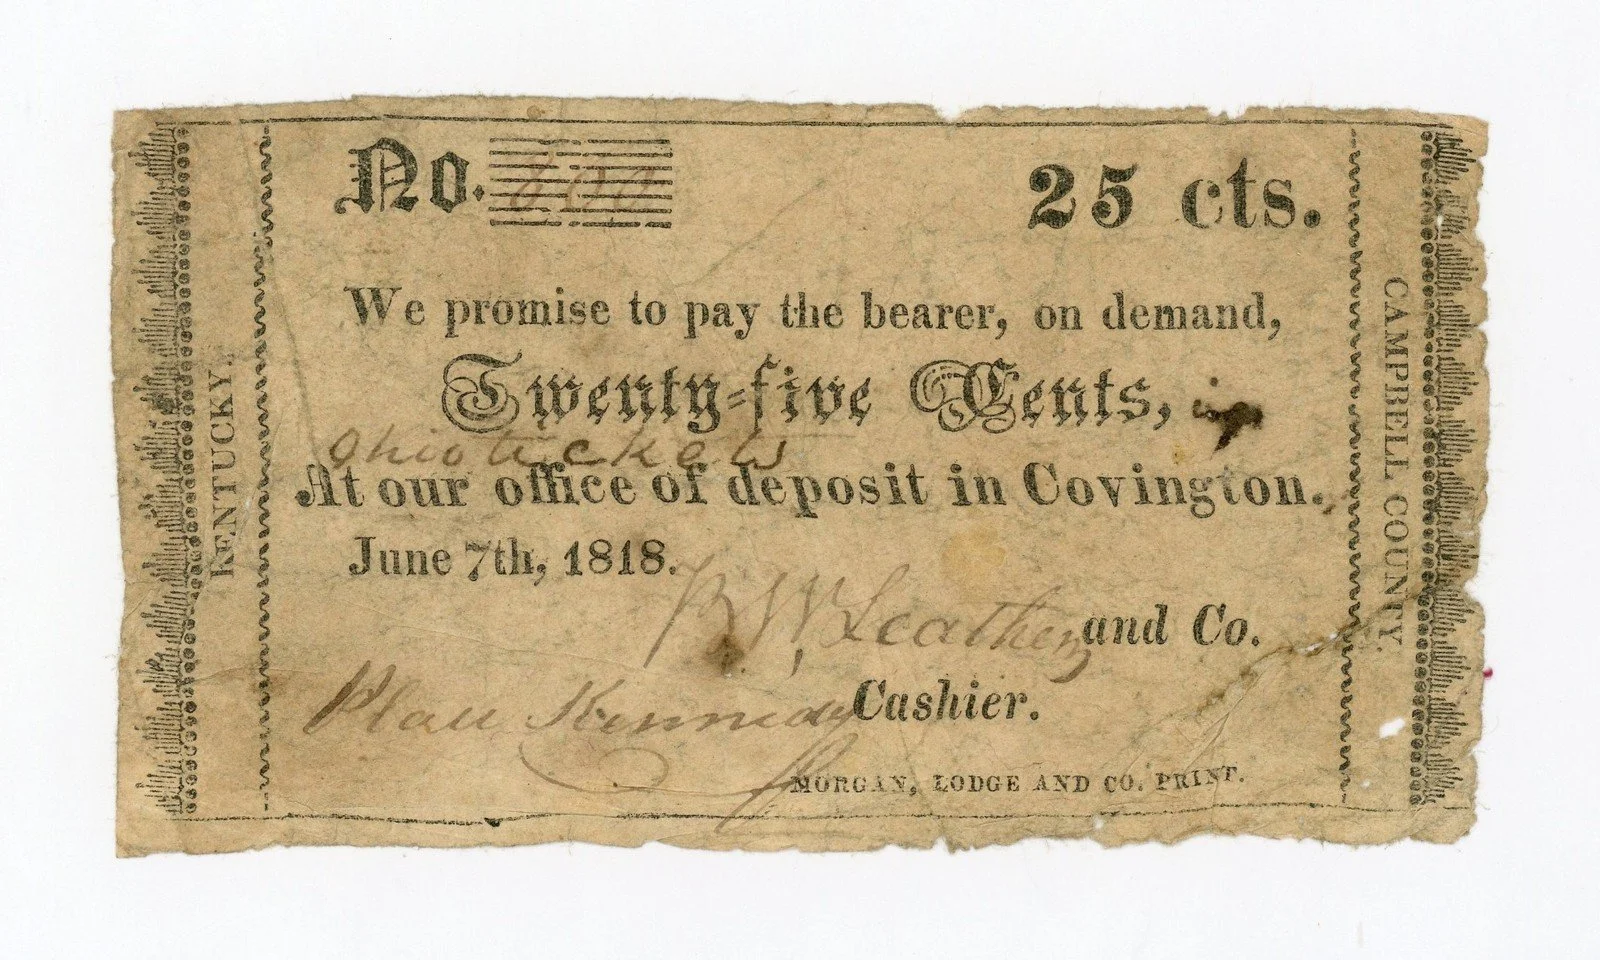 No.
25 cts.
We promise to pay the bearer, on demand,
Twenty-five Cents, in
Ohio tickets
At our office of deposit in Covington.
June 7th, 1818.
Leathers and Co.
Kennedy Cashier.
MORGAN, LODGE AND CO. PRINT.
KENTUCKY.
CAMPBELL COUNTY.